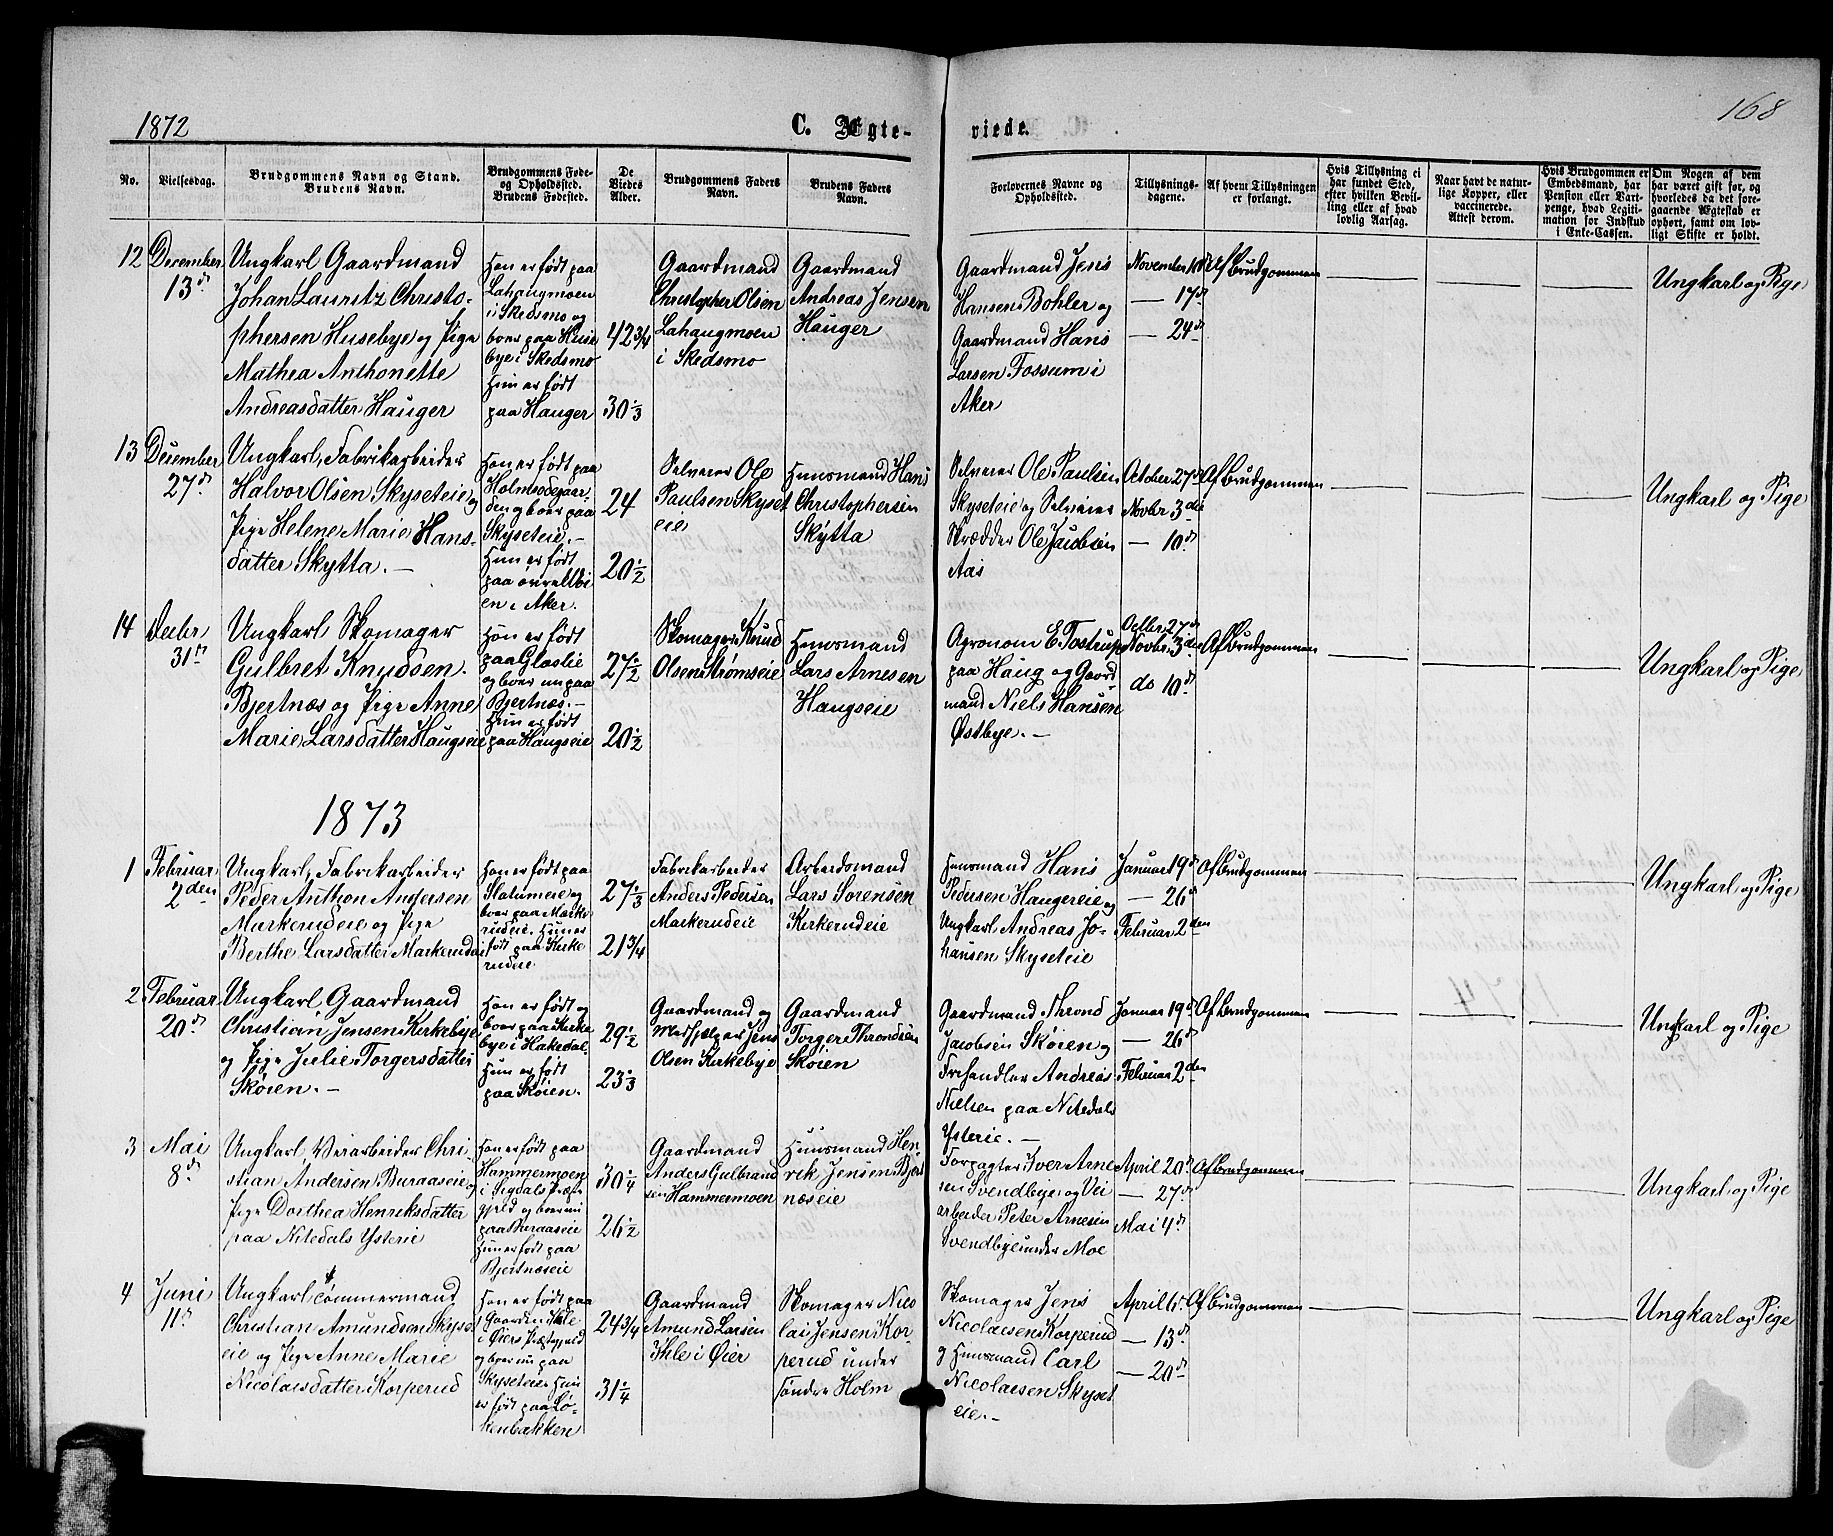 1872
C. Ægte-
viede.
168
No.
Vielsesdag.
Brudgommens Navn og Stand.
Brudens Navn.
Brudgommens Føde-
og Opholdssted.
Brudens Fødested.
De
Viedes
Alder.
Brudgommens Faders
Navn.
Brudens Faders
Navn.
Forlovernes Navne og
Opholdssted.
Tillysnings-
dagene.
Af hvem Tillysningen
er forlangt.
Hvis Tillysning ei
har fundet Sted,
efter hvilken Bevil-
ling eller af hvad
lovlig Aarsag.
Naar havt de natur-
lige Kopper, eller
vaccinerede.
Attest derom.
Hvis Brudgommen er
Embedsmand, har
Pension eller Vart-
penge, hvad Legiti-
mation for Indskud
i Enke-Cassen.
Om Nogen af dem
har været gift før, og
hvorledes da det fore-
gaaende Ægteskab er
ophørt, samt om lov-
ligt Skifte er holdt.
12
December
13d
Ungkarl Gaardmand
Johan Lauritz Christo-
phersen Husebye og Pige
Mathea Anthonette
Andreasdatter Hauger
Han er født paa
Lahaugmoen
i Skedsmo og
boer paa Huse
bye i Skedsmo
Hun er født
paa Hauger
42 3/4
30 1/3
Gaardmand
Christopher Olsen
Lahaugmoen
i Skedsmo
Gaardmand
Andreas Jensen
Hauger
Gaardmand Jens
Hansen Bohler og
Gaardmand Hans
Larsen Fossum i
Aker
November 10d
— 17d
— 24d
Af Brudgommen
Ungkarl og Pige
13
December
27d
Ungkarl, Fabrikarbeider
Halvor Olsen Skyseteie og
Pige Helene Marie Hans-
datter Skytta. —
Han er født paa
Holmsødegaar-
den og boer paa
Skyseteie. —
Hun er født
paa
en i Aker.
24
20 1/2
Selveier Ole
Paulsen Skyset
eie
Huusmand Hans
Christophersen
Skytta
Selveier Ole Paulsen
Skyseteie og Selveier
Skrædder Ole Jacobsen
Aas
October 27d
Novbr 3die
— 10d
Af Brudgommen
Ungkarl og Pige
14
Decbr
31te
Ungkarl Skomager
Gulbret Knudsen
Bjertnæs og Pige Anne
Marie Larsdatter Haugseie
Han er født
paa Glaslie
og boer nu paa
Bjertnæs. —
Hun er født
paa Haugseie
27 1/2
20 1/2
Skomager Knud
Olsen Strømseie
Huusmand
Lars Arnesen
Haugseie
Agronom E. Tostrup
paa Haug og Gaard
mand Niels Hansen
Østbye. —
Octbr. 27d
Novbr. 3die
do 10d
Af Brudgommen
Ungkarl og Pige
1873
1
Februar
2den
Ungkarl, Fabrikarbeider
Peder Anthon Andersen
Markerudeie og Pige
Berthe Larsdatter Markerudeie
Han er født paa
Slatumeie og
boer paa Marke
rudeie. Hun er
født paa Kirke
rudeie
27 1/3
21 3/4
Fabrikarbeider
Anders Pedersen
Markerudeie
Arbeidsmand
Lars Sørensen
Kirkerudeie
Huusmand Hans
Pedersen Haugereie og
Ungkarl Andreas Jo-
hansen Skyseteie
Januar 19d
— 26d
Februar 2den
Af Brudgommen
Ungkarl og Pige
2
Februar
20d
Ungkarl Gaardmand
Christian Jensen Kirkebye
og Pige Julie Torgersdatter
Skøien. —
Han er født og
boer paa Kirke
bye i Hakedal.
Hun er født
paa Skøien.
29 1/2
23 1/3
Gaardmand og
Medhjelper Jens
Olsen Kirkebye
Gaardmand
Torger Throndsen
Skøien
Gaardmand Thrond
Jacobsen Skøien og
Træhandler Andreas
Nielsen paa Nitedals
Ysterie. —
Januar 19d
— 26d
Februar 2den
Af Brudgommen
Ungkarl og Pige
3
Mai
8d
Ungkarl, Veiarbeider Chri-
stian Andersen Buraaseie og
Pige Dorthea Henriksdatter
paa Nitedals Ysterie
Han er født paa
Hammermoen
i Sigdals Præste
gjeld og boer nu
paa Buraaseie
Hun er født paa
Bjertnæseie
30 1/4
26 1/2
Gaardmand
Anders Gulbrand
sen Hammermoen
Huusmand Hen-
rik Jensen Bjert
næseie
Forpagter Iver Arne
sen Svendbye og Vei
arbeider Peter Arnesen
Svendbye under Moe
April 20d
— 27d
Mai 4d
Af Brudgommen
Ungkarl og Pige
4
Juni
11d
Ungkarl Tømmermand
Christian Amundsen Skyset
eie og Pige Anne Marie
Nicolaisdatter Korperud
Han er født paa
Gaarden Ihle
i Øiers Præstegjeld
og boer nu paa
Skyseteie Hun
er født paa Lø-
kenbakken
24 3/4
31 1/4
Gaardmand
Amund Larsen
Ihle i Øier
Skomager Nico
lai Jensen Kor
perud under
Søndre Holm
Skomager Jens
Nicolaisen Korperud
og Huusmand Carl
Nicolaisen Skyset
eie. —
April 6d
— 13d
— 20d
Af Brudgommen
Ungkarl og Pige